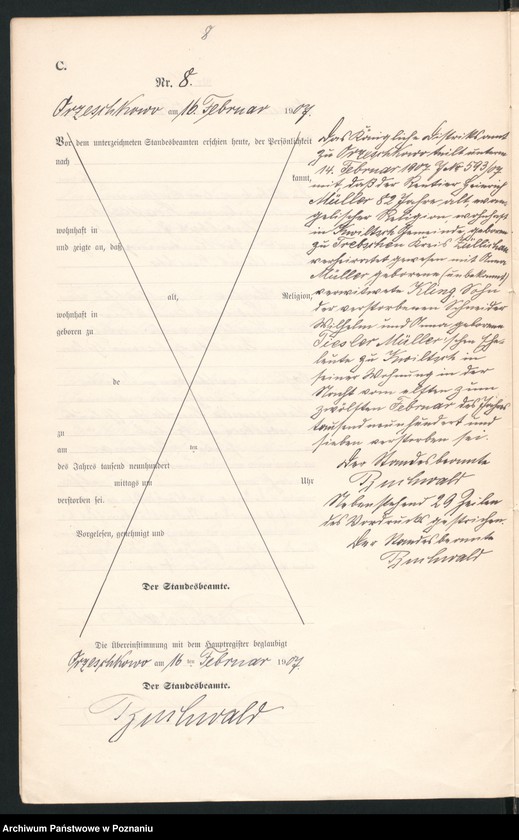 8
C.
Nr. 8.
Orzeschkowo am 16. Februar 1907.
Vor dem unterzeichneten Standesbeamten erschien heute, der Persönlichkeit
nach
kannt,
wohnhaft in
und zeigte an, daß
alt, Religion,
wohnhaft in
geboren zu
de
zu
am ten
des Jahres tausend neunhundert
mittags um Uhr
verstorben sei.
Vorgelesen, genehmigt und
Der Standesbeamte.
Das Königliche Distriktsamt
zu Orzeschkowo teilt unterm
14. Februar 1907 593/07
mit, daß der Rentier Heinrich
Müller 82 Jahre alt, evan-
gelischer Religion, wohnhaft
in Kwiltsch Gemeinde, geboren
zu Trebschen Kreis Züllichau
verheiratet gewesen mit
Müller geborene (unbekannt)
verwitwete Kling, Sohn
der verstorbenen Schneider
Wilhelm und Anna geborene
Tiesler Müller'schen Ehe-
leute zu Kwiltsch in
seiner Wohnung in der
Nacht vom elften zum
zwölften Februar des Jahres
tausend neunhundert und
sieben verstorben sei.
Der Standesbeamte
Buchwald
Nebenstehend 29 Zeilen
des Vordrucks gestrichen.
Der Standesbeamte
Buchwald
Die Übereinstimmung mit dem Hauptregister beglaubigt
Orzeschkowo am 16 ten Februar 1907.
Der Standesbeamte.
Buchwald
Archiwum Państwowe w Poznaniu